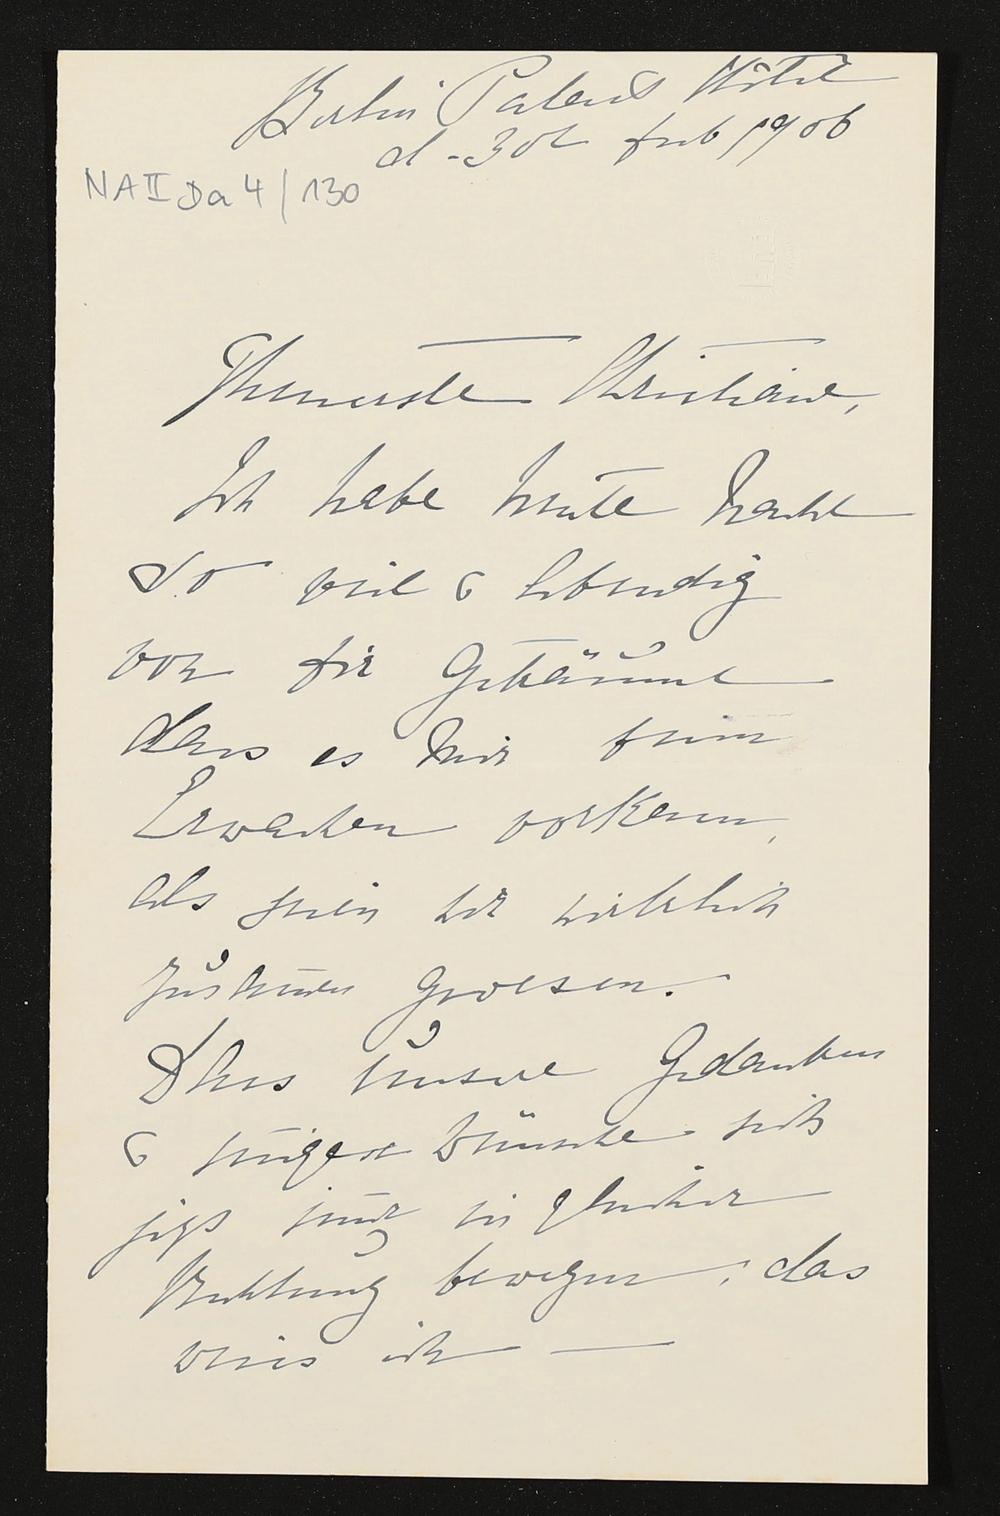 Berlin Palast Hôtel
d. 30t 1906
NA II Da 4/130
Theuerste Christiane,
Ich habe heute Nacht
so viel & lebendig
von Dir Geträumt
dass es mir beim
Erwachen vorkam,
als seien wir wirklich
zusammen gwesen.
Dass unsere Gedanken
& innigen Wünsche sich
jetzt immer in gleicher
Richtung bewegen, das
weis ich —